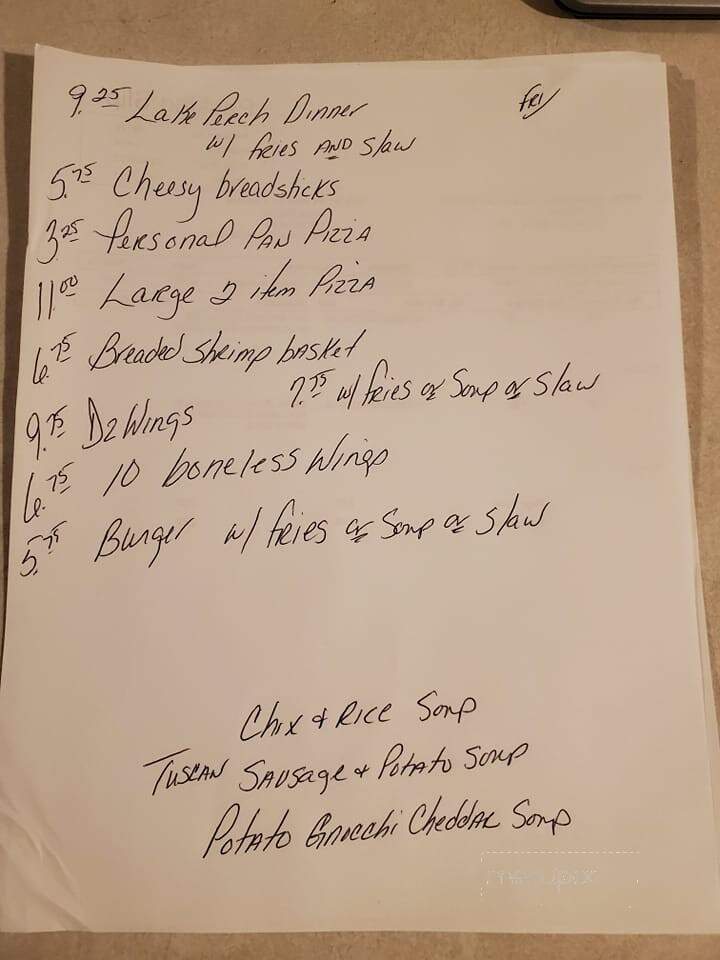 9.25 Lake Perch Dinner
FRI
w/ fries AND Slaw
5.75 Cheesy breadsticks
3.25 Personal Pan Pizza
11.00 Large 2 item Pizza
6.75 Breaded Shrimp basket
7.75 w/ fries or Soup or Slaw
9.75 D2 Wings
6.75 10 boneless Wings
5.75 Burger w/ fries or Soup or Slaw
Chix & Rice Soup
Tuscan Sausage & Potato Soup
Potato Gnocchi Cheddar Soup